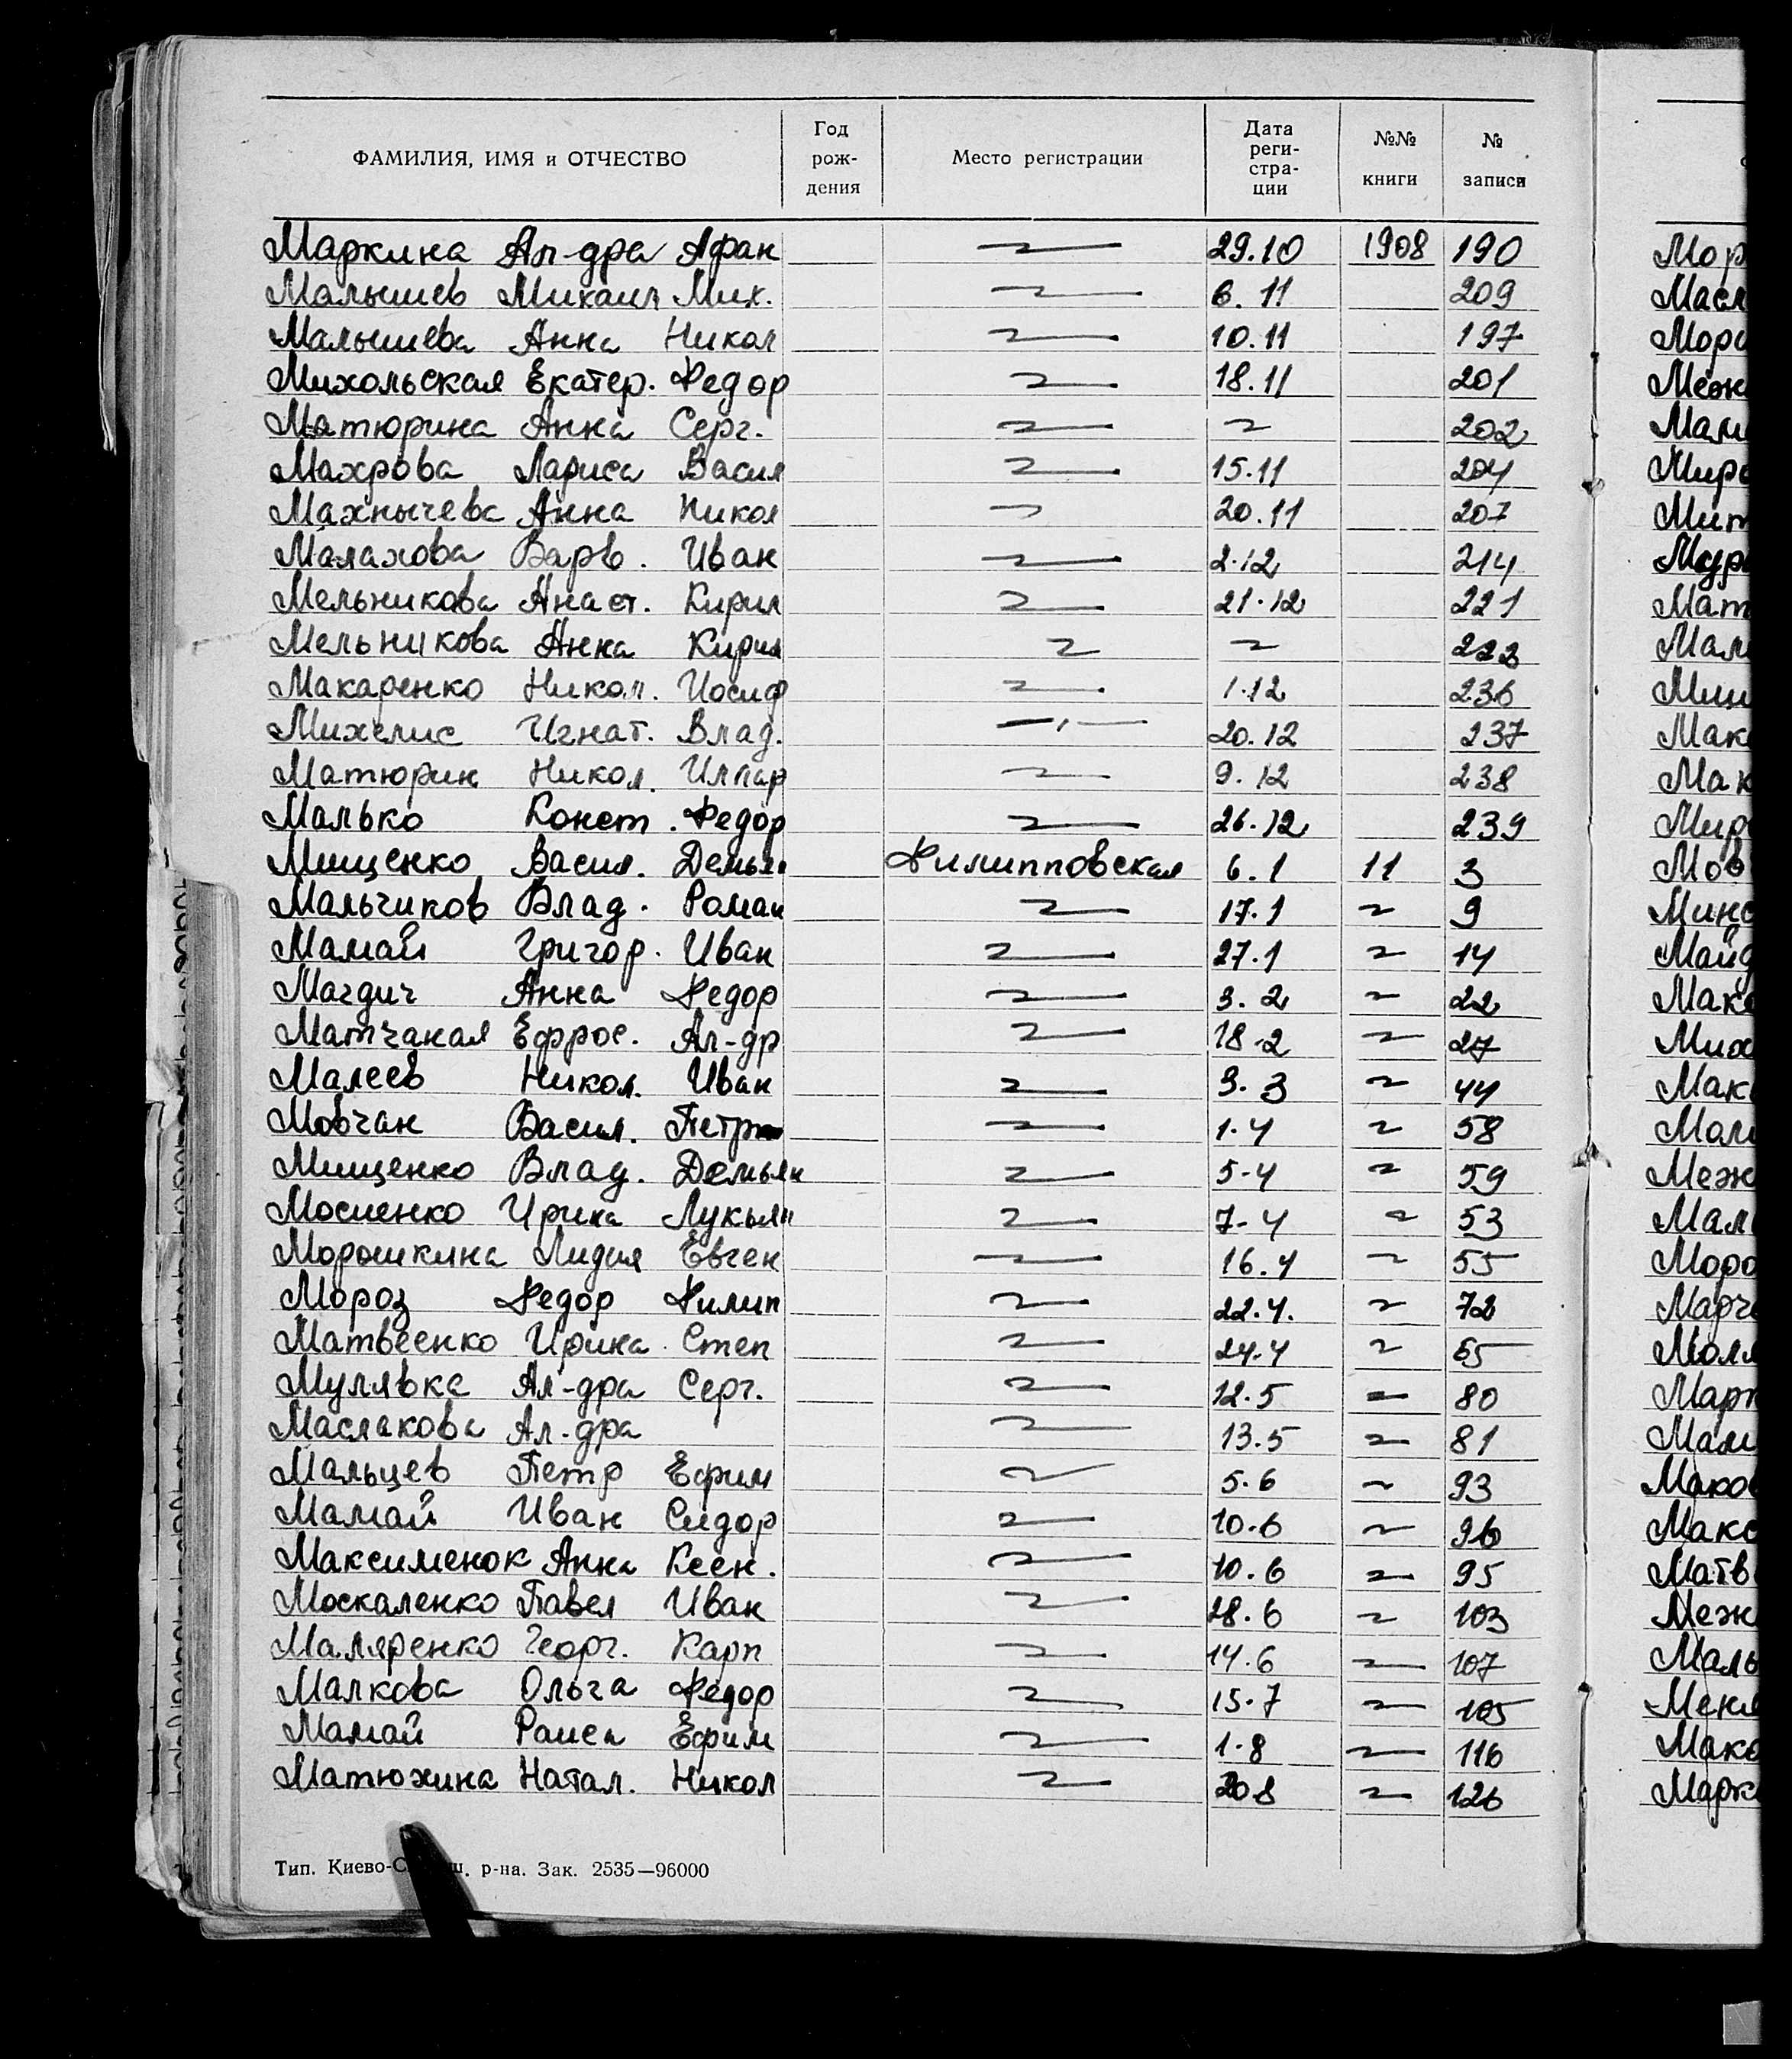 ФАМИЛИЯ, ИМЯ и ОТЧЕСТВО Год рож-дения Место регистрации Дата реги-стра-ции №№ книги № записи
Маркина Ал-дра Афан 29.10 1908 190
Малышев Михаил Мих. 6.11 209
Малышева Анна Никол 10.11 197
Михольская Екатер. Федор 18.11 201
Матюрина Анна Серг. 202
Махрова Лариса Васил 15.11 204
Махнычева Анна Никол 20.11 207
Малахова Варв. Иван 2.12 214
Мельникова Анаст. Кирил 21.12 221
Мельникова Анна Кирил 222
Макаренко Никол. Иосиф 1.12 236
Михелис Игнат. Влад. 20.12 237
Матюрин Никол. 9.12 238
Малько Конст. Федор 26.12 239
Мищенко Васил. Демьян Филипповская 6.1 11 3
Мальчиков Влад. Роман 17.1 9
Мамай Григор. Иван 27.1 14
Магдич Анна Федор 3.2 22
Матчакая Ефрос. Ал-др 18.2 27
Малеев Никол. Иван 3.3 44
Мовчан Васил. Петр 1.4 58
Мищенко Влад. Демьян 5-4 59
Мосиенко Ирина Лукьян 7-4 53
Морошкина Лидия Евген 16.4 55
Мороз Федор Филип 22.4. 72
Матвеенко Ирина Степ 24.4 65
Мулявка Ал-дра Серг. 12.5 80
Маслакова Ал-дра 13.5 81
Мальцев Петр Ефим 5.6 93
Мамай Иван Сидор 10.6 96
Максименок Анна Ксен. 10.6 95
Москаленко Павел Иван 28.6 103
Маляренко Георг. Карп 14.6 107
Малкова Ольга Федор 15.7 105
Мамай Раиса Ефим 1.8 116
Матюхина Натал. Никол 20.8 126
Тип. Киево- р-на. Зак. 2535—96000